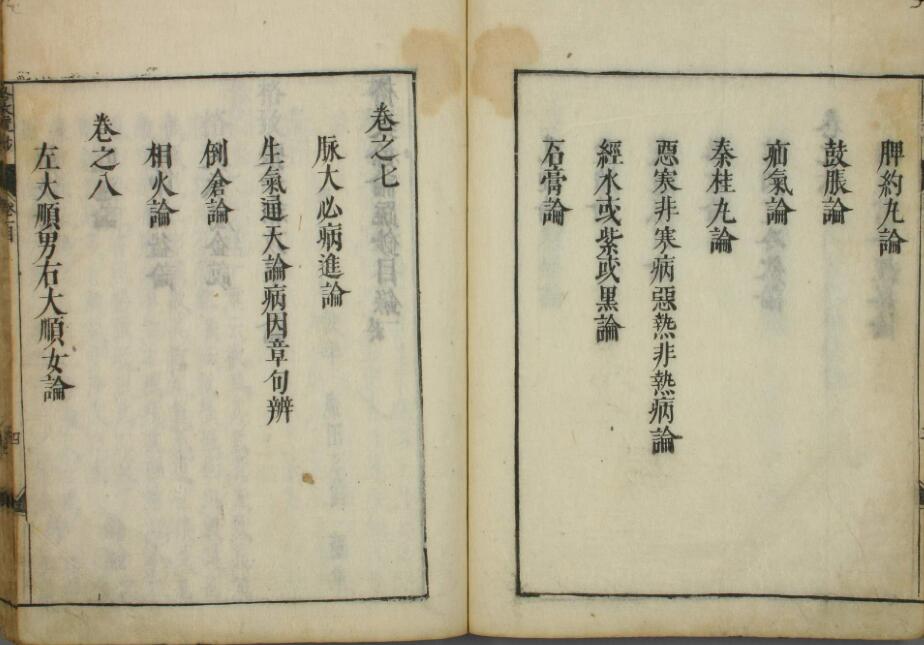 脾約九論
鼓脹論
疝氣論
秦桂九論
惡寒非寒病惡熱非熱病論
經水或紫或黒論
石膏論
卷之七
脉大必病進論
生氣通天論病因章句辨
倒倉論
相火論
卷之八
左大順男右大順女論